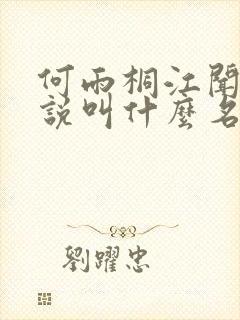 何雨桐江聞
說叫什麼名
劉躍忠